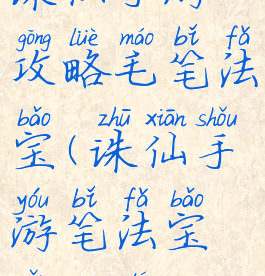 gōng lüè máo bǐ fǎ
攻略毛笔法
bǎo zhū xiān shǒu
宝(诛仙手
yóu bǐ fǎ bǎo
游笔法宝